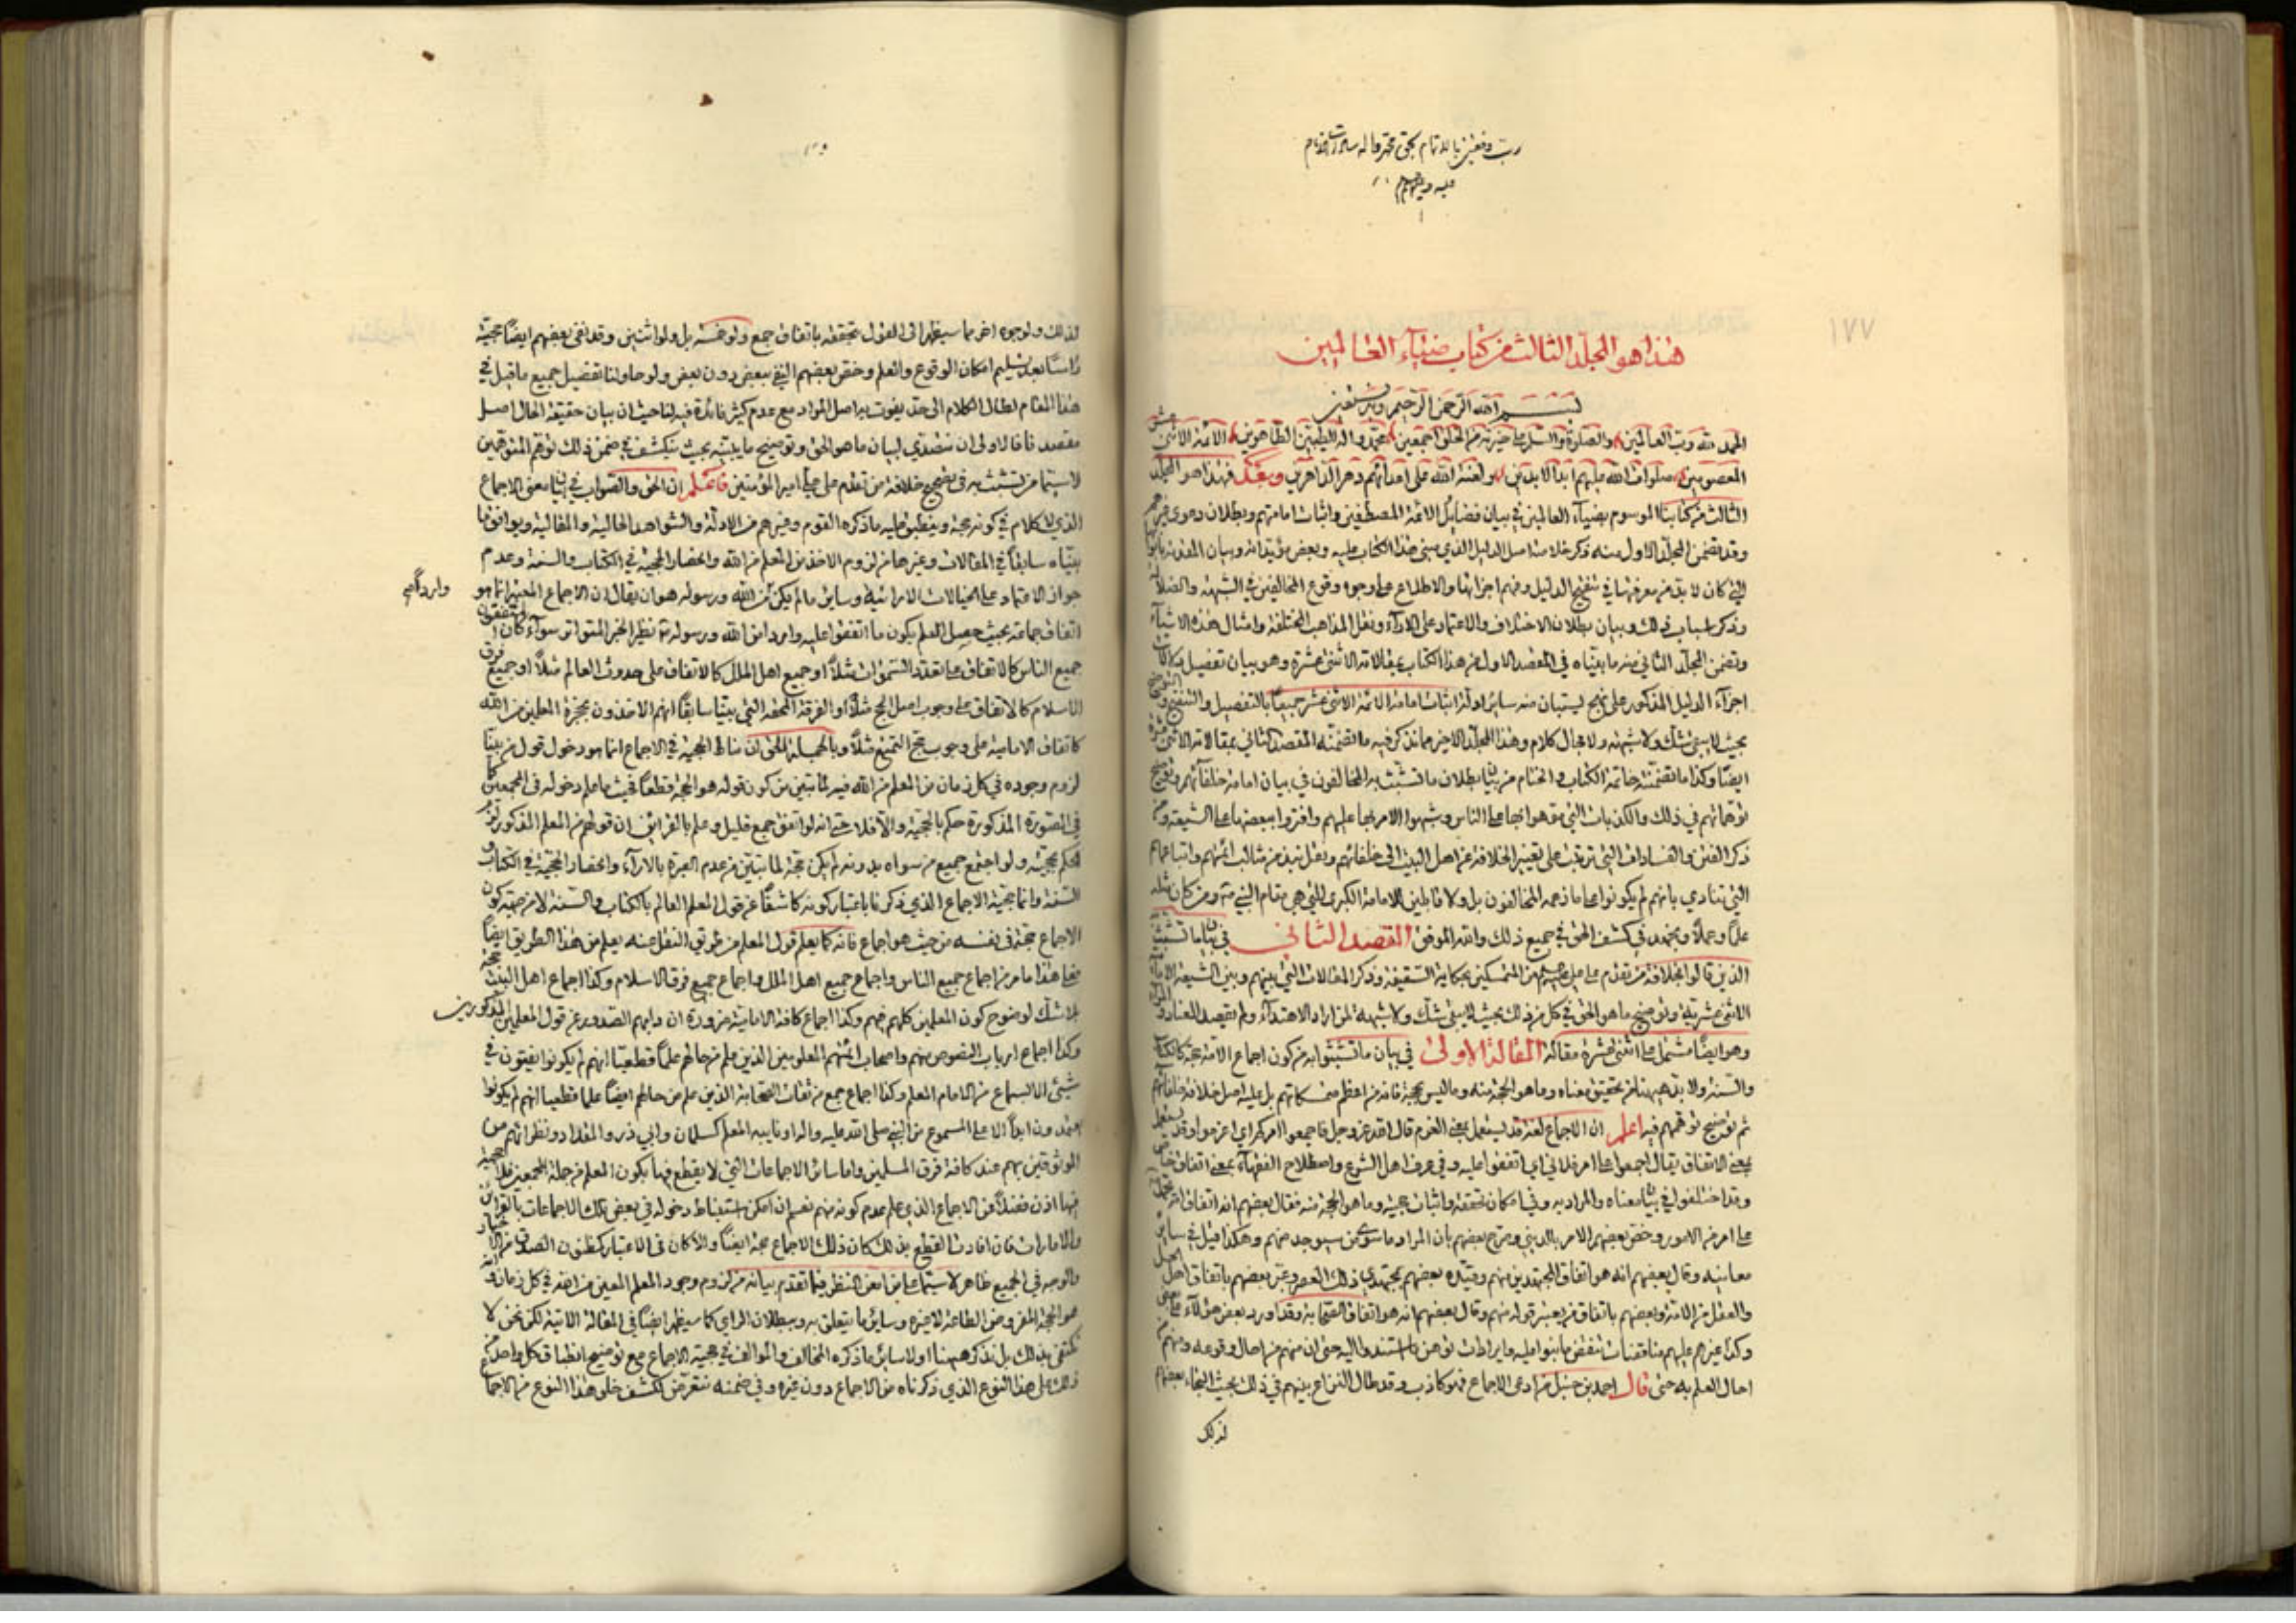 رب وفقني بالاتمام بحق محمد واله سادات الانام
عليه وعليهم السلام
١٧٧
هذا هو المجلد الثالث من كتاب ضياء العالمين
بسم الله الرحمن الرحيم وبه نستعين
الحمد لله رب العالمين والصلوة والسلام على خيرته من الخلق اجمعين محمد واله الطيبين الطاهرين الائمة الاثنى عشر
المعصومين صلوات الله عليهم ابد الابدين ولعنة الله على اعدائهم دهر الداهرين وبعد فهذا هو المجلد
الثالث من كتابنا الموسوم بضياء العالمين في بيان فضايل الائمة المصطفين واثبات امامتهم وبطلان دعوى غيرهم
وقد تضمن المجلد الاول منه ذكر خلاصة اصل الدليل الذي مبنى هذا الكتاب عليه وبعض مؤيداته وبيان المقدمة
التي كان لا بد من معرفتها في تنقيح الدليل وفهم اجزائها والاطلاع على وجوه وقوع المخالفين في الشبهة والضلالة
وذكر اسباب ذلك وبيان بطلان الاختلاف والاعتماد على الاراء ونقل المذاهب المختلفة وامثال هذه الاشياء
وتضمن المجلد الثاني منه ما بيناه في المقصد الاول من هذا الكتاب بمقالاته الاثنى عشرة وهو بيان تفصيل
اجزاء الدليل المذكور على نهج يستبان منه ساير ادلة اثبات امامة الائمة الاثنى عشر جميعا بالتفصيل والتنقيح
بحيث لا يبقى شك ولا شبهة ولا مجال كلام وهذا المجلد الاخير مما نذكر فيه ما تضمنه المقصد الثاني بمقالاته الاثنى عشرة
ايضا وكذا ما تضمنته خاتمة الكتاب والختام من بيان بطلان ما تشبث به المخالفون في بيان امامة خلفائهم وتوضيح
توهماتهم في ذلك والكذبات التي موهوا بها على الناس وشبهوا الامر بها عليهم وافتروا ببعضها على الشيعة
ذكر الفتن والفسادات التي ترتبت على تغيير الخلافة عن اهل البيت الى خلفائهم ونقل نبذ من مثالب ائمتهم واتباعهم
التي تنادي بانهم لم يكونوا على ما زعمه المخالفون بل ولا قابلين للامامة الكبرى التي هي مقام النبي ومن كان مثله
علما وعملا ونجتهد في كشف الحق في جميع ذلك والله الموفق المقصد الثاني في بيان ما تشبث
الذين قالوا بخلافة من تقدم على علي من المتمسكين بحكاية السقيفة وذكر المقالات التي بينهم وبين الشيعة الامامية
الاثنى عشرية وتوضيح ما هو الحق في كل من ذلك بحيث لا يبقى شك ولا شبهة لمن اراد الاهتداء ولم يقصد العناد
وهو ايضا مشتمل على اثنتى عشرة مقالة المقالة الاولى في بيان ما تشبثوا به من كون اجماع الامة حجة كالكتاب
والسنة ولا بد هيهنا من تحقيق معناه وما هو الحجة منه وما ليس بحجة فانه من اعظم متمسكاتهم بل عليه اصل خلافة خلفائهم
ثم توضيح توهمهم فيه اعلم ان الاجماع لغة قد يستعمل بمعنى العزم قال الله عز وجل فاجمعوا امركم اي اعزموا وقد يستعمل
بمعنى الاتفاق يقال اجمعوا على امر فلاني اي اتفقوا عليه وفي عرف اهل الشرع واصطلاح الفقهاء بمعنى اتفاق خاص
وقد اختلفوا في بيان معناه والمراد به وفي امكان تحققه واثبات حجيته وما هو الحجة منه فقال بعضهم انه اتفاق
على امر من الامور وخص بعضهم الامر بالديني وصرح بعضهم بان المراد ما سوى من سيوجد منهم وهكذا قيل في ساير
معانيه وقال بعضهم انه هو اتفاق المجتهدين منهم وقيده بعضهم بمجتهدي ذلك العصر وعبر بعضهم باتفاق اهل الحل
والعقد من الامة وبعضهم باتفاق من يعتبر قوله منهم وقال بعضهم انه هو اتفاق الصحابة وقد اورد بعض هؤلاء على بعض
وكذا غيرهم عليهم مناقضات تنقض ما بنوا عليه وايرادات توهن ما استندوا اليه حتى ان منهم من احال وقوعه ومنهم من
احال العلم به حتى قال احمد بن حنبل من ادعى الاجماع فهو كاذب وقد طال النزاع بينهم في ذلك بحيث التجاء بعضهم
لذلك
لذلك ولوجوه اخر مما سيظهر الى القول بتحققه باتفاق جمع ولو خمسة بل ولو اثنين وقد نفى بعضهم ايضا حجيته
راسا بعد تسليم امكان الوقوع والعلم وخص بعضهم النفي ببعض دون بعض ولو حاولنا تفصيل جميع ما قيل في
هذا المقام لطال الكلام الى حد يفوت به اصل المراد مع عدم كثير فائدة فيه لنا حيث ان بيان حقيقة الحال اصل
مقصدنا فالاولى ان نتصدى لبيان ما هو الحق وتوضيح ما يثبته بحيث ينكشف في ضمن ذلك توهم المتوهمين
لا سيما من تشبث به في تصحيح خلافة من تقدم على امير المؤمنين فاعلم ان الحق والصواب في بيان معنى الاجماع
الذي لا كلام في كونه حجة وينطبق عليه ما ذكره القوم وغيرهم من الادلة والشواهد الحالية والمقالية ويوافق ما
بيناه سابقا في المقالات وغيرها من لزوم الاخذ من المعلم من الله وانحصار الحجية في الكتاب والسنة وعدم
جواز الاعتماد على الخيالات الارائية وساير ما لم يكن من الله ورسوله هو ان يقال ان الاجماع المعتبر انما هو
اتفاق جماعة بحيث حصل العلم بكون ما اتفقوا عليه واردا من الله ورسوله نظير الخبر المتواتر سواء كان المتفقون
جميع الناس كالاتفاق على تعدد السموات مثلا او جميع اهل الملل كالاتفاق على حدوث العالم مثلا او جميع فرق
الاسلام كالاتفاق على وجوب اصل الحج مثلا او الفرقة المحقة التي بينا سابقا انهم الاخذون بحجزة المعلمين من الله
كاتفاق الامامية على وجوب حج التمتع مثلا وبالجملة الحق ان مناط الحجية في الاجماع انما هو دخول قول من بينا
لزوم وجوده في كل زمان من المعلم من الله فيه لما تبين من كون قوله هو الحجة قطعا فحيث ما علم دخوله في المجمعين
في الصورة المذكورة حكم بالحجية والا فلا حتى انه لو اتفق جمع قليل وعلم بالقراين ان قولهم من المعلم المذكور
حكم بحجيته ولو اجتمع جميع من سواه بدونه لم يكن حجة لما تبين من عدم العبرة بالاراء وانحصار الحجية في الكتاب و
السنة وانما حجية الاجماع الذي ذكرنا باعتبار كونه كاشفا عن قول المعلم العالم بالكتاب والسنة لا من جهة كون
الاجماع حجة في نفسه من حيث هو اجماع فانه كما يعلم قول المعلم من طريق النقل عنه يعلم من هذا الطريق ايضا
فعلى هذا ما مر من اجماع جميع الناس واجماع جميع اهل الملل واجماع جميع فرق الاسلام وكذا اجماع اهل البيت حجة
بلا شك لوضوح كون المعلمين كلهم فيهم وكذا اجماع كافة الامامية ضرورة ان دابهم الصدور عن قول المعلمين المذكورين
وكذا اجماع ارباب النصوص منهم واصحاب ائمتهم المعلومين الذين علم من حالهم علما قطعيا انهم لم يكونوا يفتون في
شيئ الا بالسماع من الامام المعلم وكذا اجماع جمع من ثقات الصحابة الذين علم من حالهم ايضا علما قطعيا انهم لم يكونوا
يعتمدون ابدا الا على المسموع من النبي صلى الله عليه واله او نايبه المعلم كسلمان وابي ذر والمقداد ونظرائهم من
الموثوقين بهم عند كافة فرق المسلمين واما ساير الاجماعات التي لا يقطع فيها بكون المعلم من جملة المجمعين فلا حجية
فيها اذن فضلا عن الاجماع الذي علم عدم كونه منهم نعم ان امكن استنباط دخوله في بعض تلك الاجماعات بالقراين
والامارات فان افادت القطع بذلك كان ذلك الاجماع حجة ايضا والا كان في الاعتبار كمظنون الصدق من الاخبار
والوجه في الجميع ظاهر لا سيما على من امعن النظر فيما تقدم بيانه من لزوم وجود المعلم المعين من الله في كل زمان وانه
هو الحجة المفروض الطاعة لا غيره وساير ما يتعلق به وببطلان الراي كما سيظهر ايضا في المقالة الاتية لكن نحن لا
نكتفي بذلك بل نذكر هيهنا اولا ساير ما ذكره المخالف والموالف في حجية الاجماع مع توضيح انطباق كل واحد من
ذلك على هذا النوع الذي ذكرناه من الاجماع دون غيره وفي ضمنه نتعرض لكشف خلو هذا النوع من الاجماع